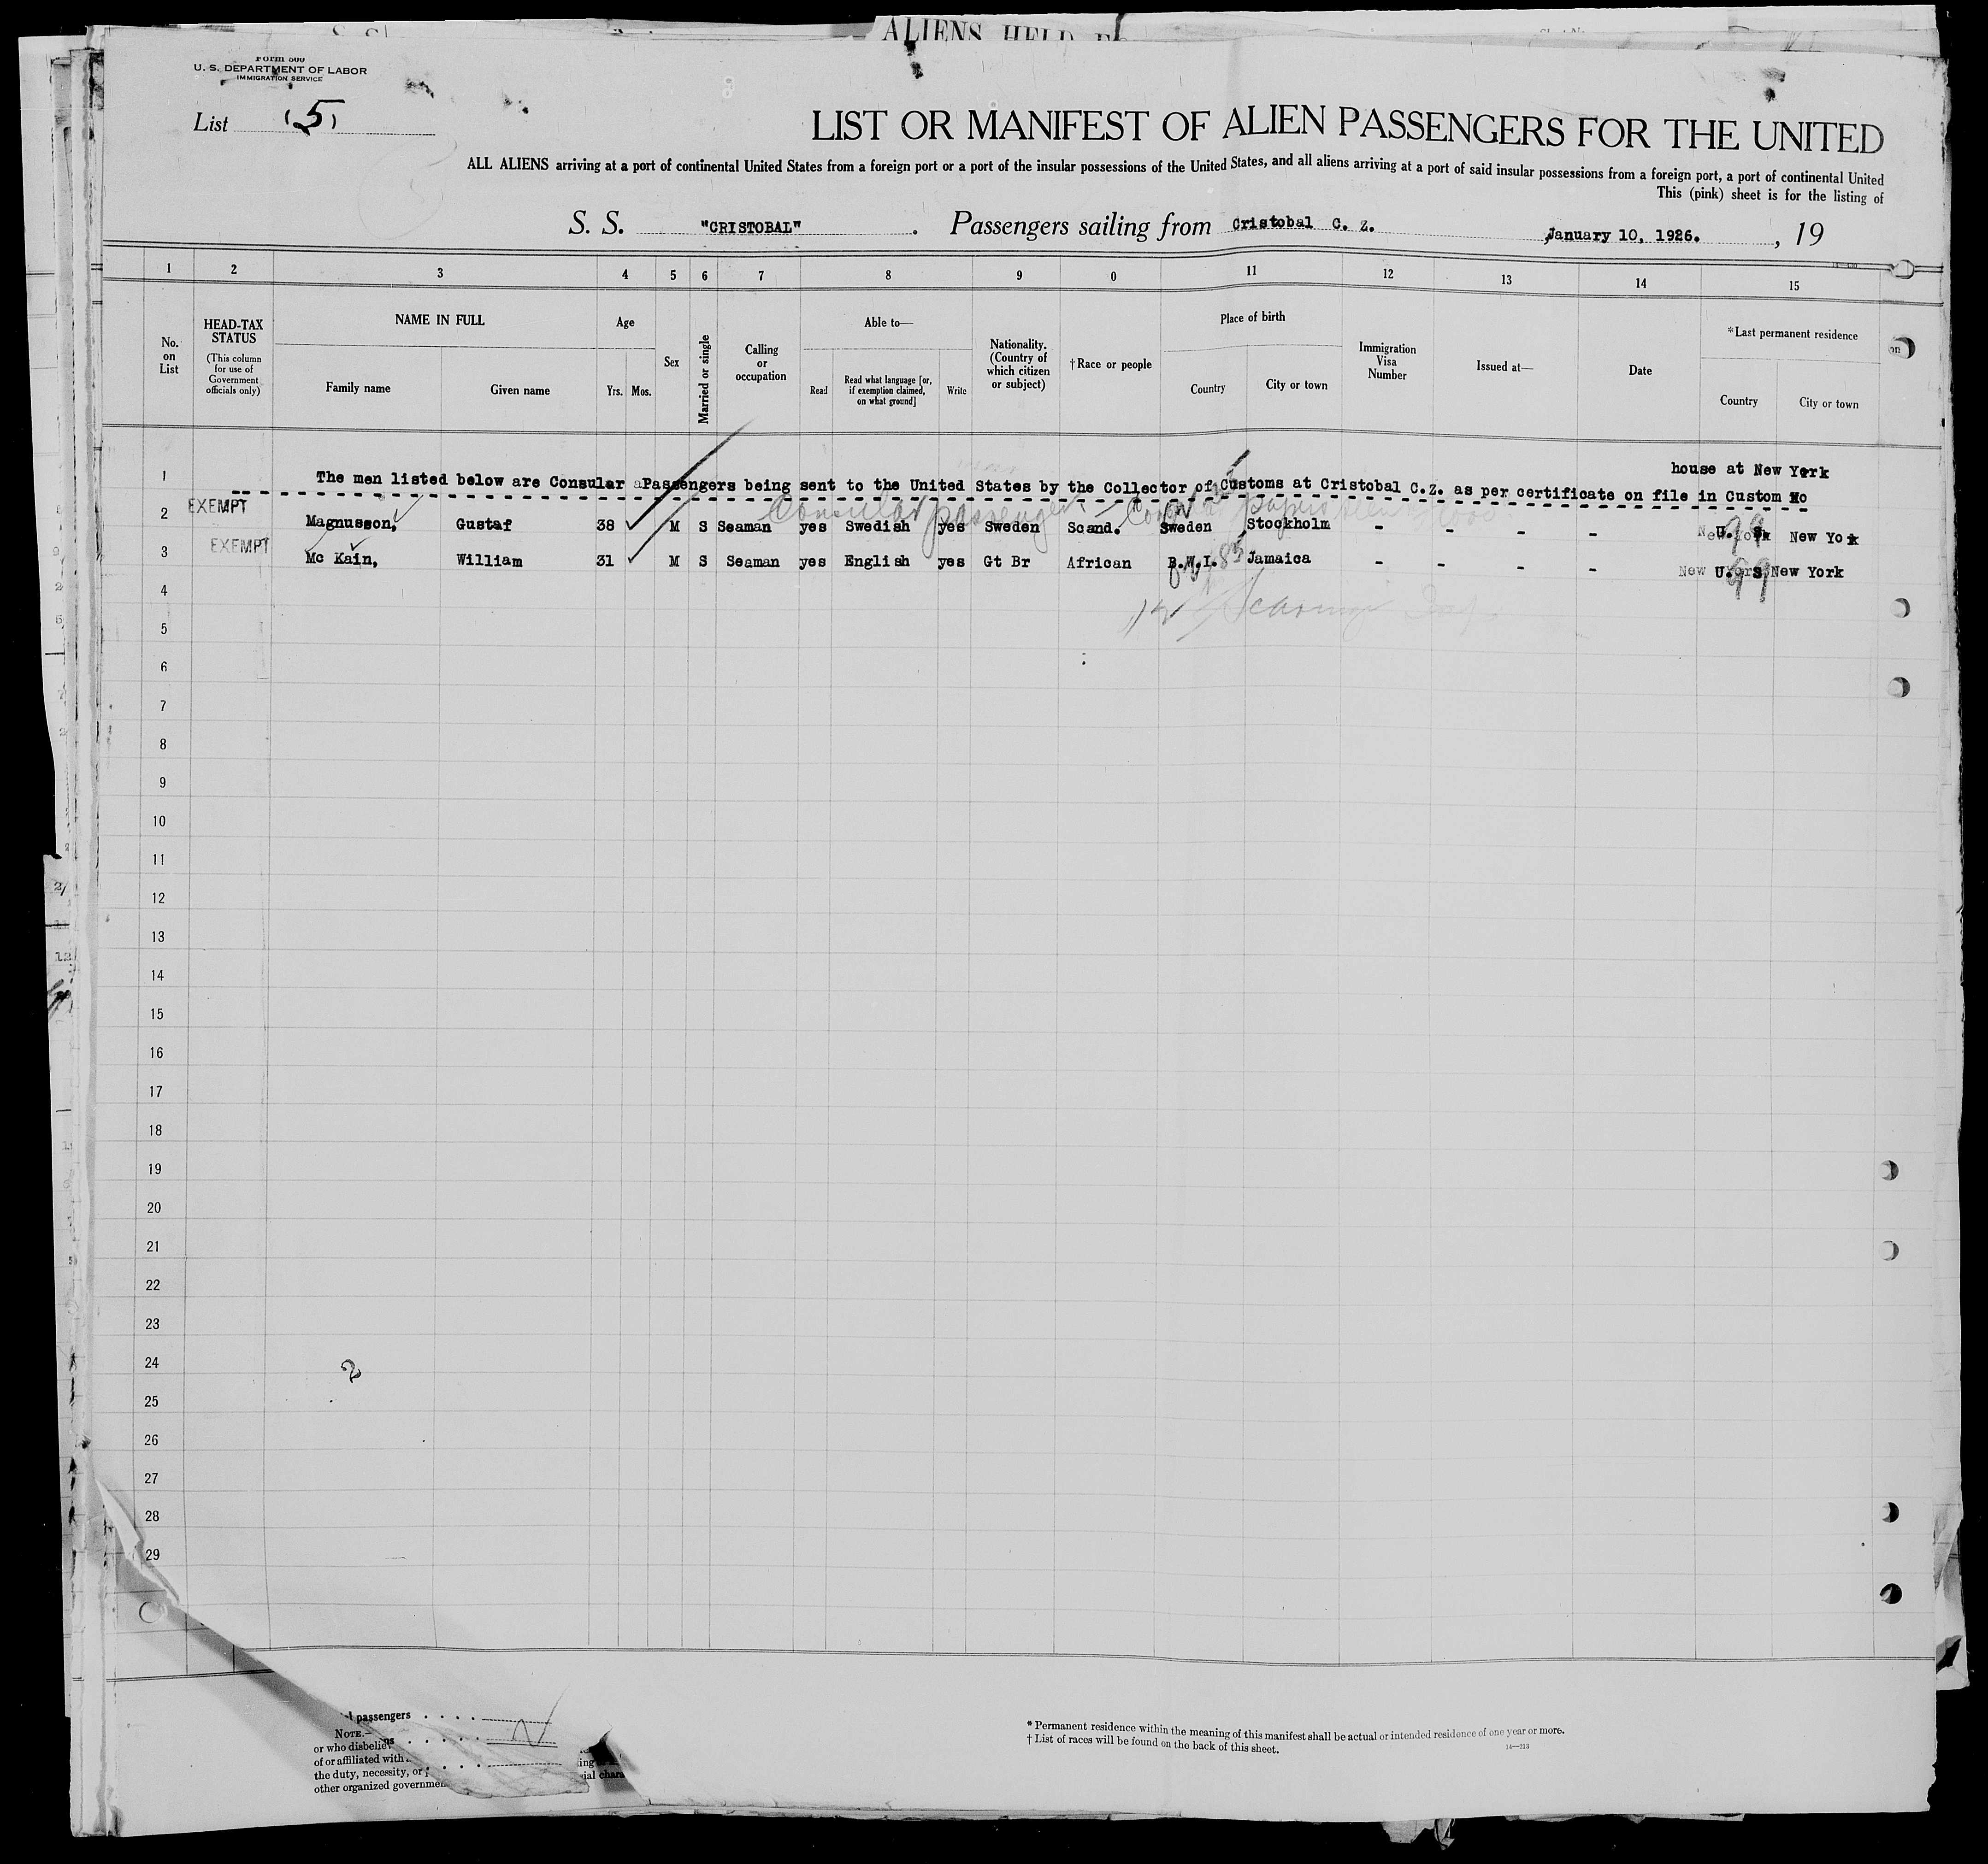 ALIENS HELD
Form 500
U. S. DEPARTMENT OF LABOR
IMMIGRATION SERVICE
List (5)
LIST OR MANIFEST OF ALIEN PASSENGERS FOR THE UNITED
ALL ALIENS arriving at a port of continental United States from a foreign port or a port of the insular possessions of the United States, and all aliens arriving at a port of said insular possessions from a foreign port, a port of continental United
This (pink) sheet is for the listing of
S. S. "CRISTOBAL" . Passengers sailing from Cristobal C. Z. January 10, 1926. , 19
1 2 3 4 5 6 7 8 9 0 11 12 13 14 15
No. on List
HEAD-TAX STATUS
(This column for use of Government officials only)
NAME IN FULL
Family name Given name
Age
Yrs. Mos.
Sex
Married or single
Calling or occupation
Able to—
Read Read what language [or, if exemption claimed, on what ground] Write
Nationality. (Country of which citizen or subject)
†Race or people
Place of birth
Country City or town
Immigration Visa Number
Issued at—
Date
*Last permanent residence
Country City or town
house at New York
1 The men listed below are Consular Passengers being sent to the United States by the Collector of Customs at Cristobal C.Z. as per certificate on file in Custom
Consular passenger
2 EXEMPT Magnusson, Gustaf 38 M S Seaman yes Swedish yes Sweden Scand. Sweden Stockholm - - - - U. S. New York
3 EXEMPT Mc Kain, William 31 M S Seaman yes English yes Gt Br African B.W.I. Jamaica - - - - U. S. New York
4
5
6
7
8
9
10
11
12
13
14
15
16
17
18
19
20
21
22
23
24
2
25
26
27
28
29
passengers
NOTE.—
or who disbelie
of or affiliated with
the duty, necessity, or
other organized governme
* Permanent residence within the meaning of this manifest shall be actual or intended residence of one year or more.
† List of races will be found on the back of this sheet.
14—213